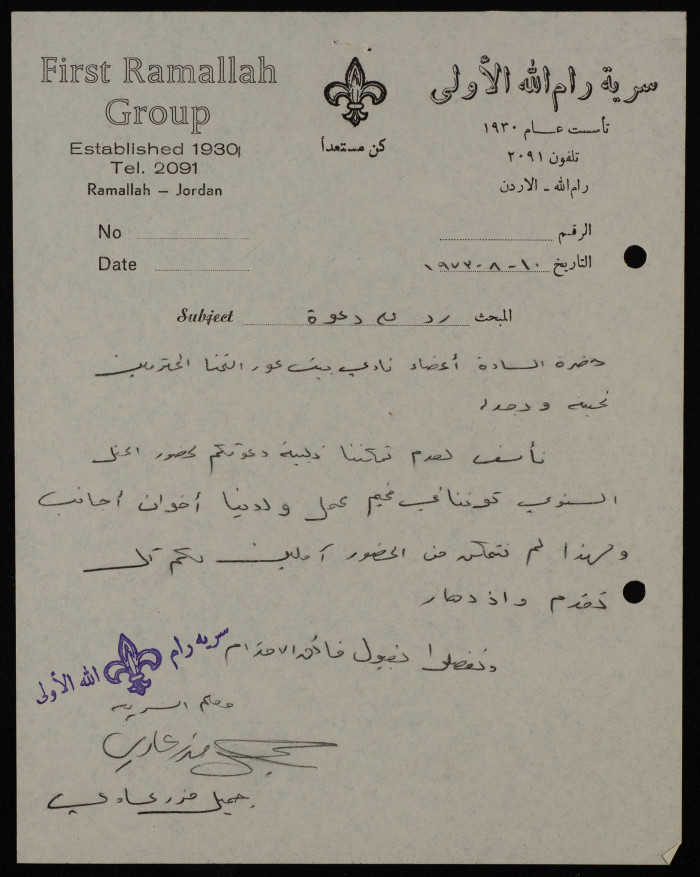 First Ramallah
Group
Established 1930
Tel. 2091
Ramallah — Jordan
كن مستعداً
سرية رام الله الأولى
تأسست عام ١٩٣٠
تلفون ٢٠٩١
رام الله - الاردن
No
الرقم
Date
التاريخ ١٠-٨-١٩٧٣
Subject المبحث رد على دعوة
حضرة السادة أعضاء نادي بيت عور التحتا المحترمين
تحية وبعد،
نأسف لعدم تمكننا تلبية دعوتكم لحضور الحفل
السنوي كوننا في مخيم عمل ولدينا أخوان أجانب
ولهذا لم نتمكن من الحضور آملين لكم كل
تقدم وازدهار
وتفضلوا بقبول فائق الاحترام
سرية رام الله الأولى
السرية
جميل